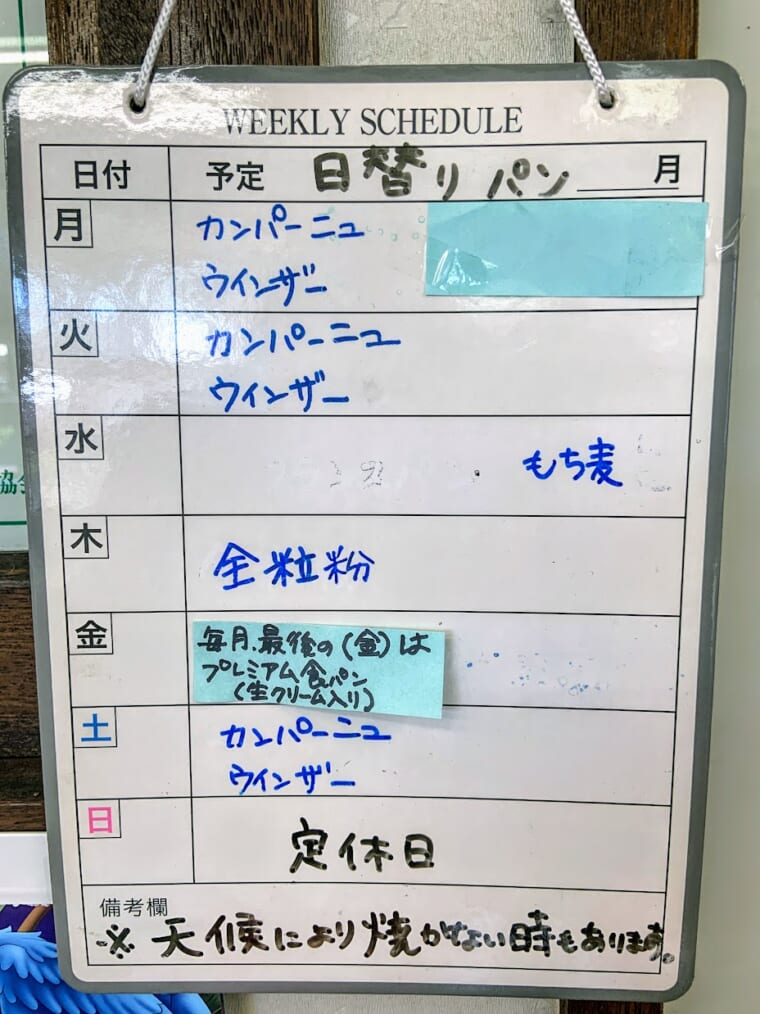 WEEKLY SCHEDULE
日付 予定 日替り パン 月
月 カンパーニュ
ウインザー
火 カンパーニュ
ウインザー
水 もち麦
木 全粒粉
金 毎月、最後の(金)は
プレミアム食パン
(生クリーム入り)
土 カンパーニュ
ウインザー
日 定休日
備考欄
※ 天候により焼かない時もあります。
協会